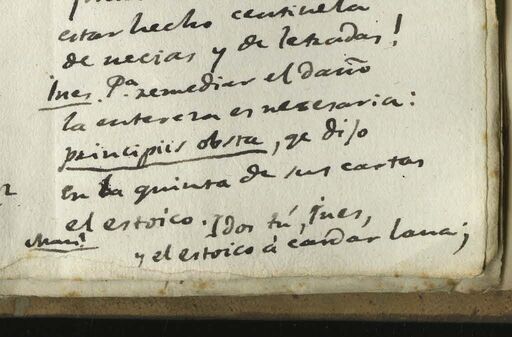 estar hecho centinela
de necias y de letradas!
Ines. Pa. remediar el daño
la entereza es necesaria:
principiis obsta, qe dijo
en la quinta de sus cartas
el estoico.
Idos tú, Ines,
y el estoico á cardar lana;